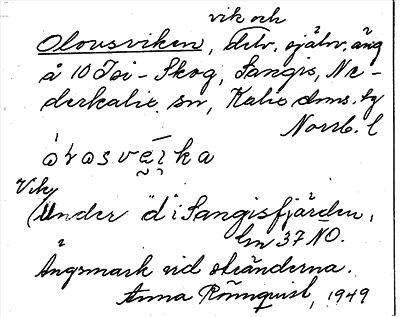 vik och
Olovsviken, delv. självr. äng
å 10 Toi-Skog, Sangis, Ne-
derkalix sn, Kalix dms. tg
Norrb. l
ò̀vasvḙ̄ī̮ka
Vik
(Under d i Sangisfjärden,
km 37 NO.
Ängsmark vid stränderna.
Anna Rönnquist, 1949